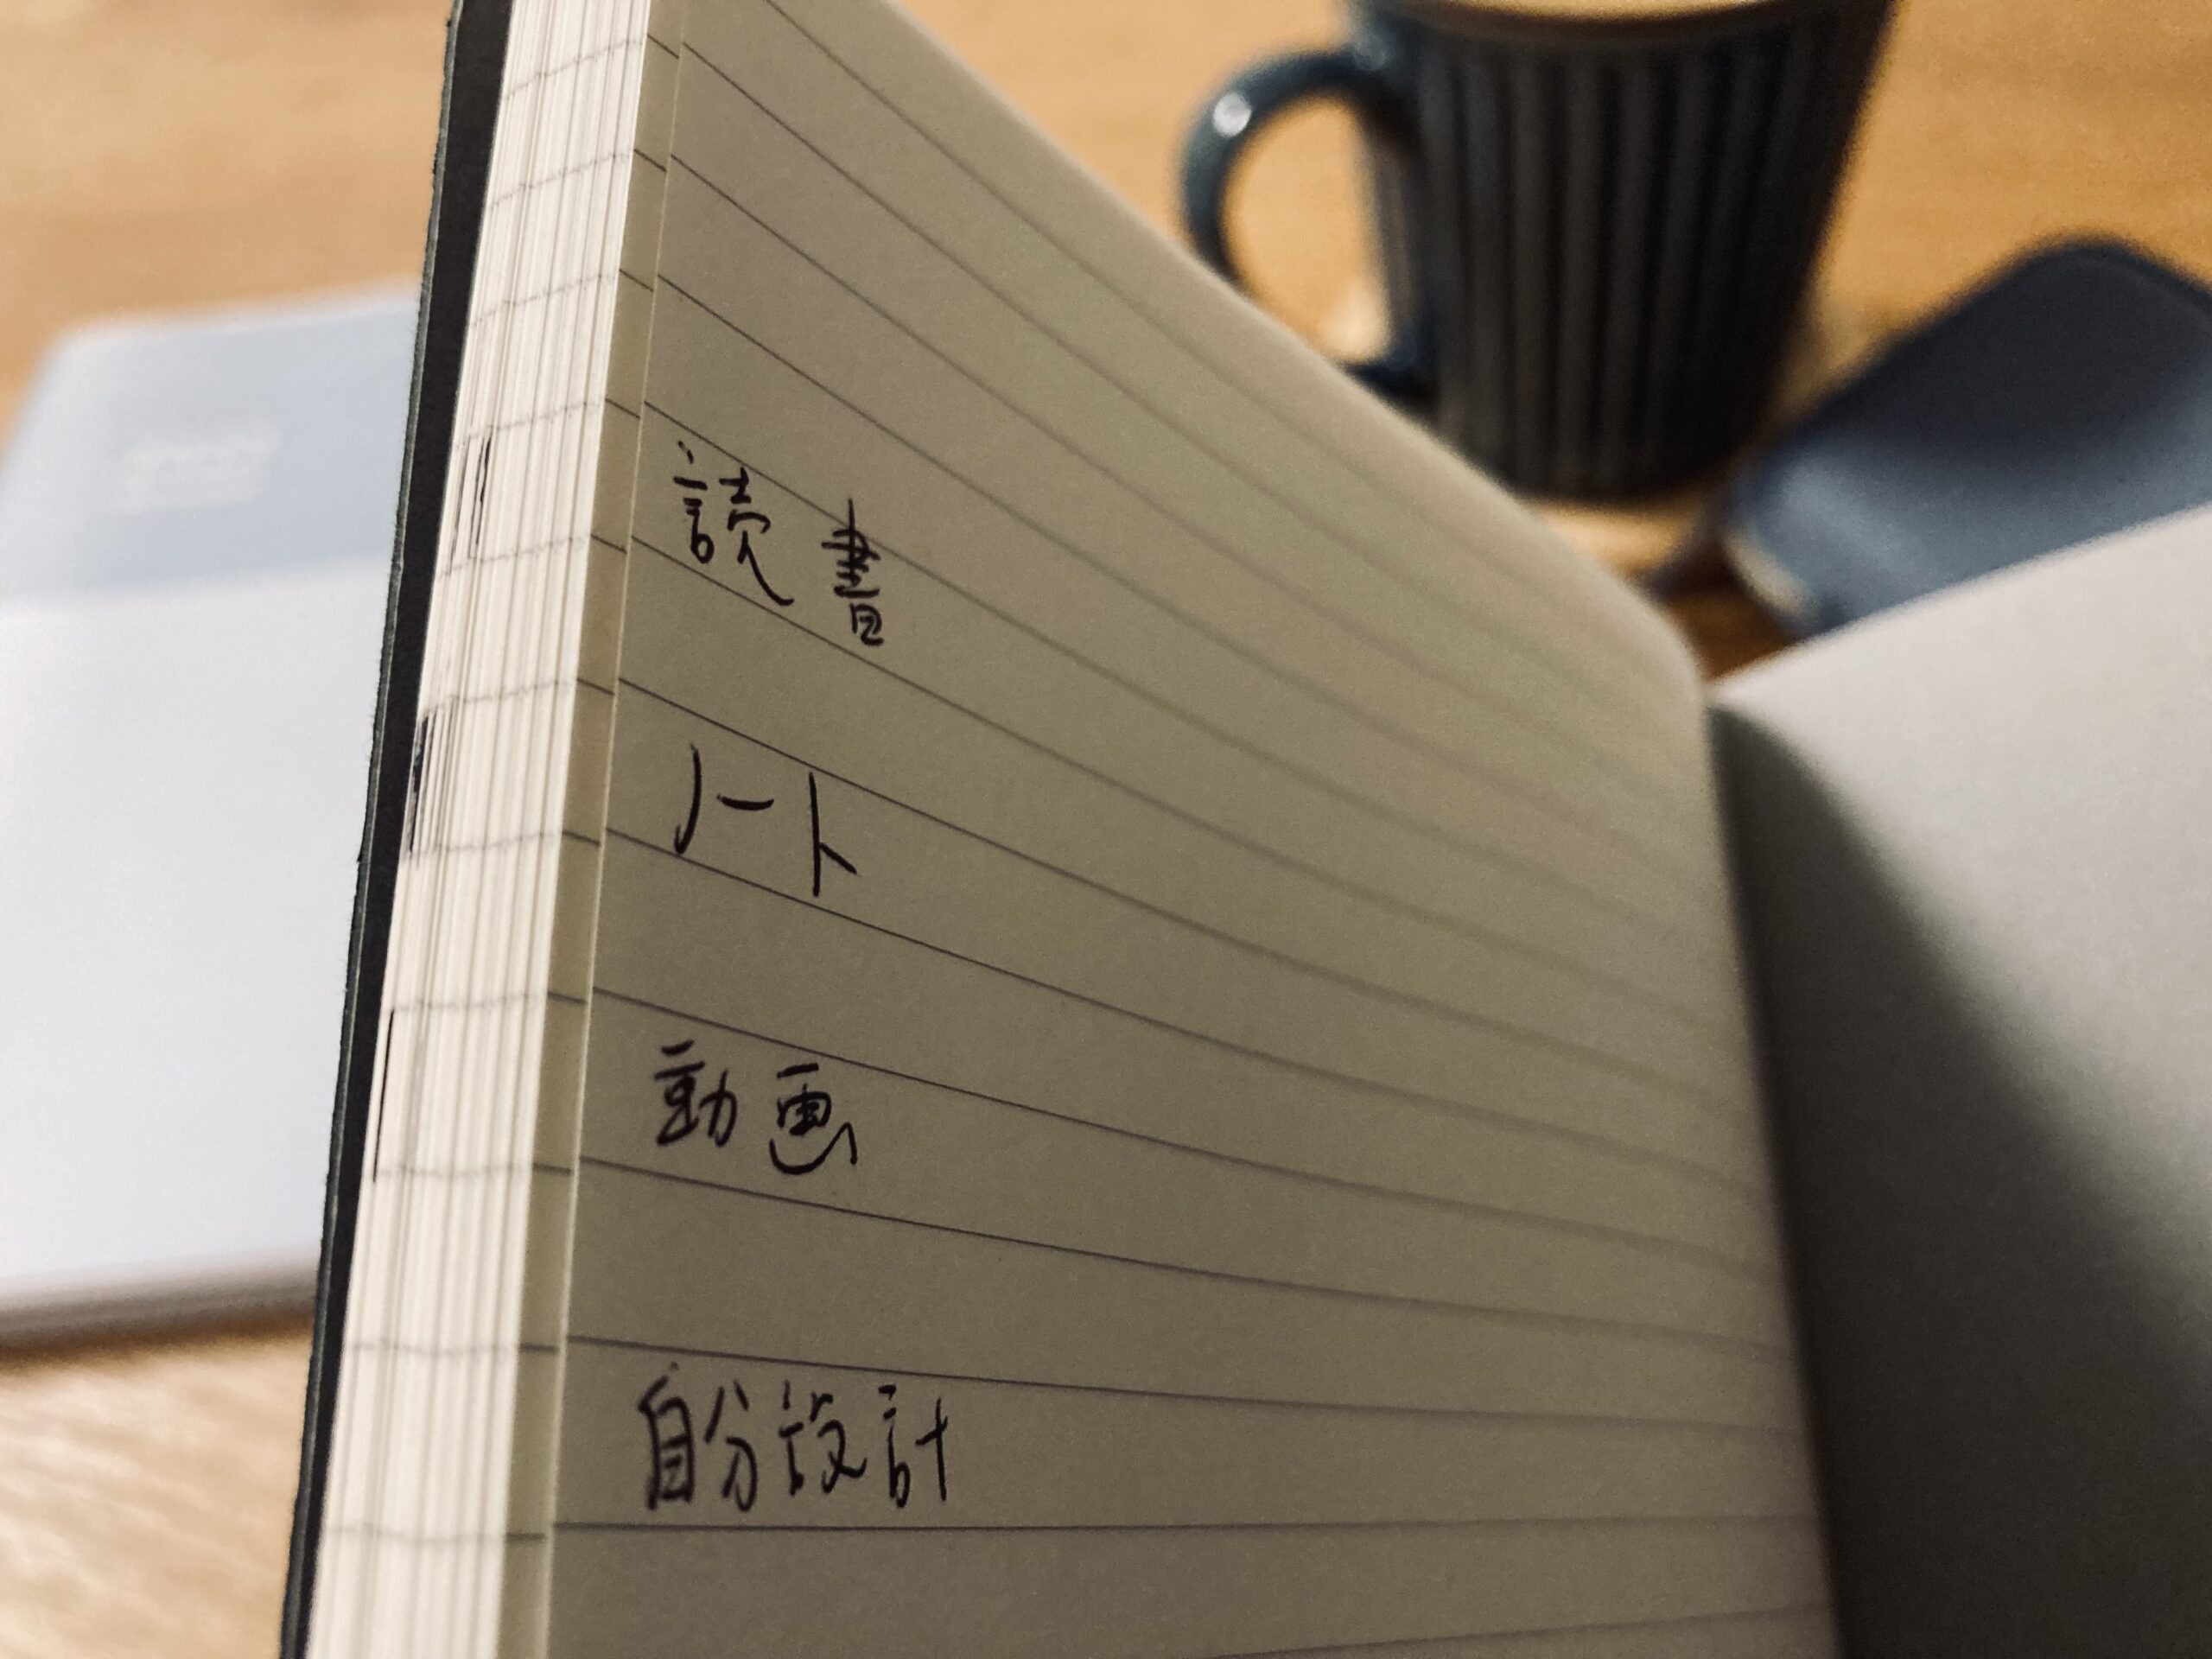 読書
ノート
動画
自分設計